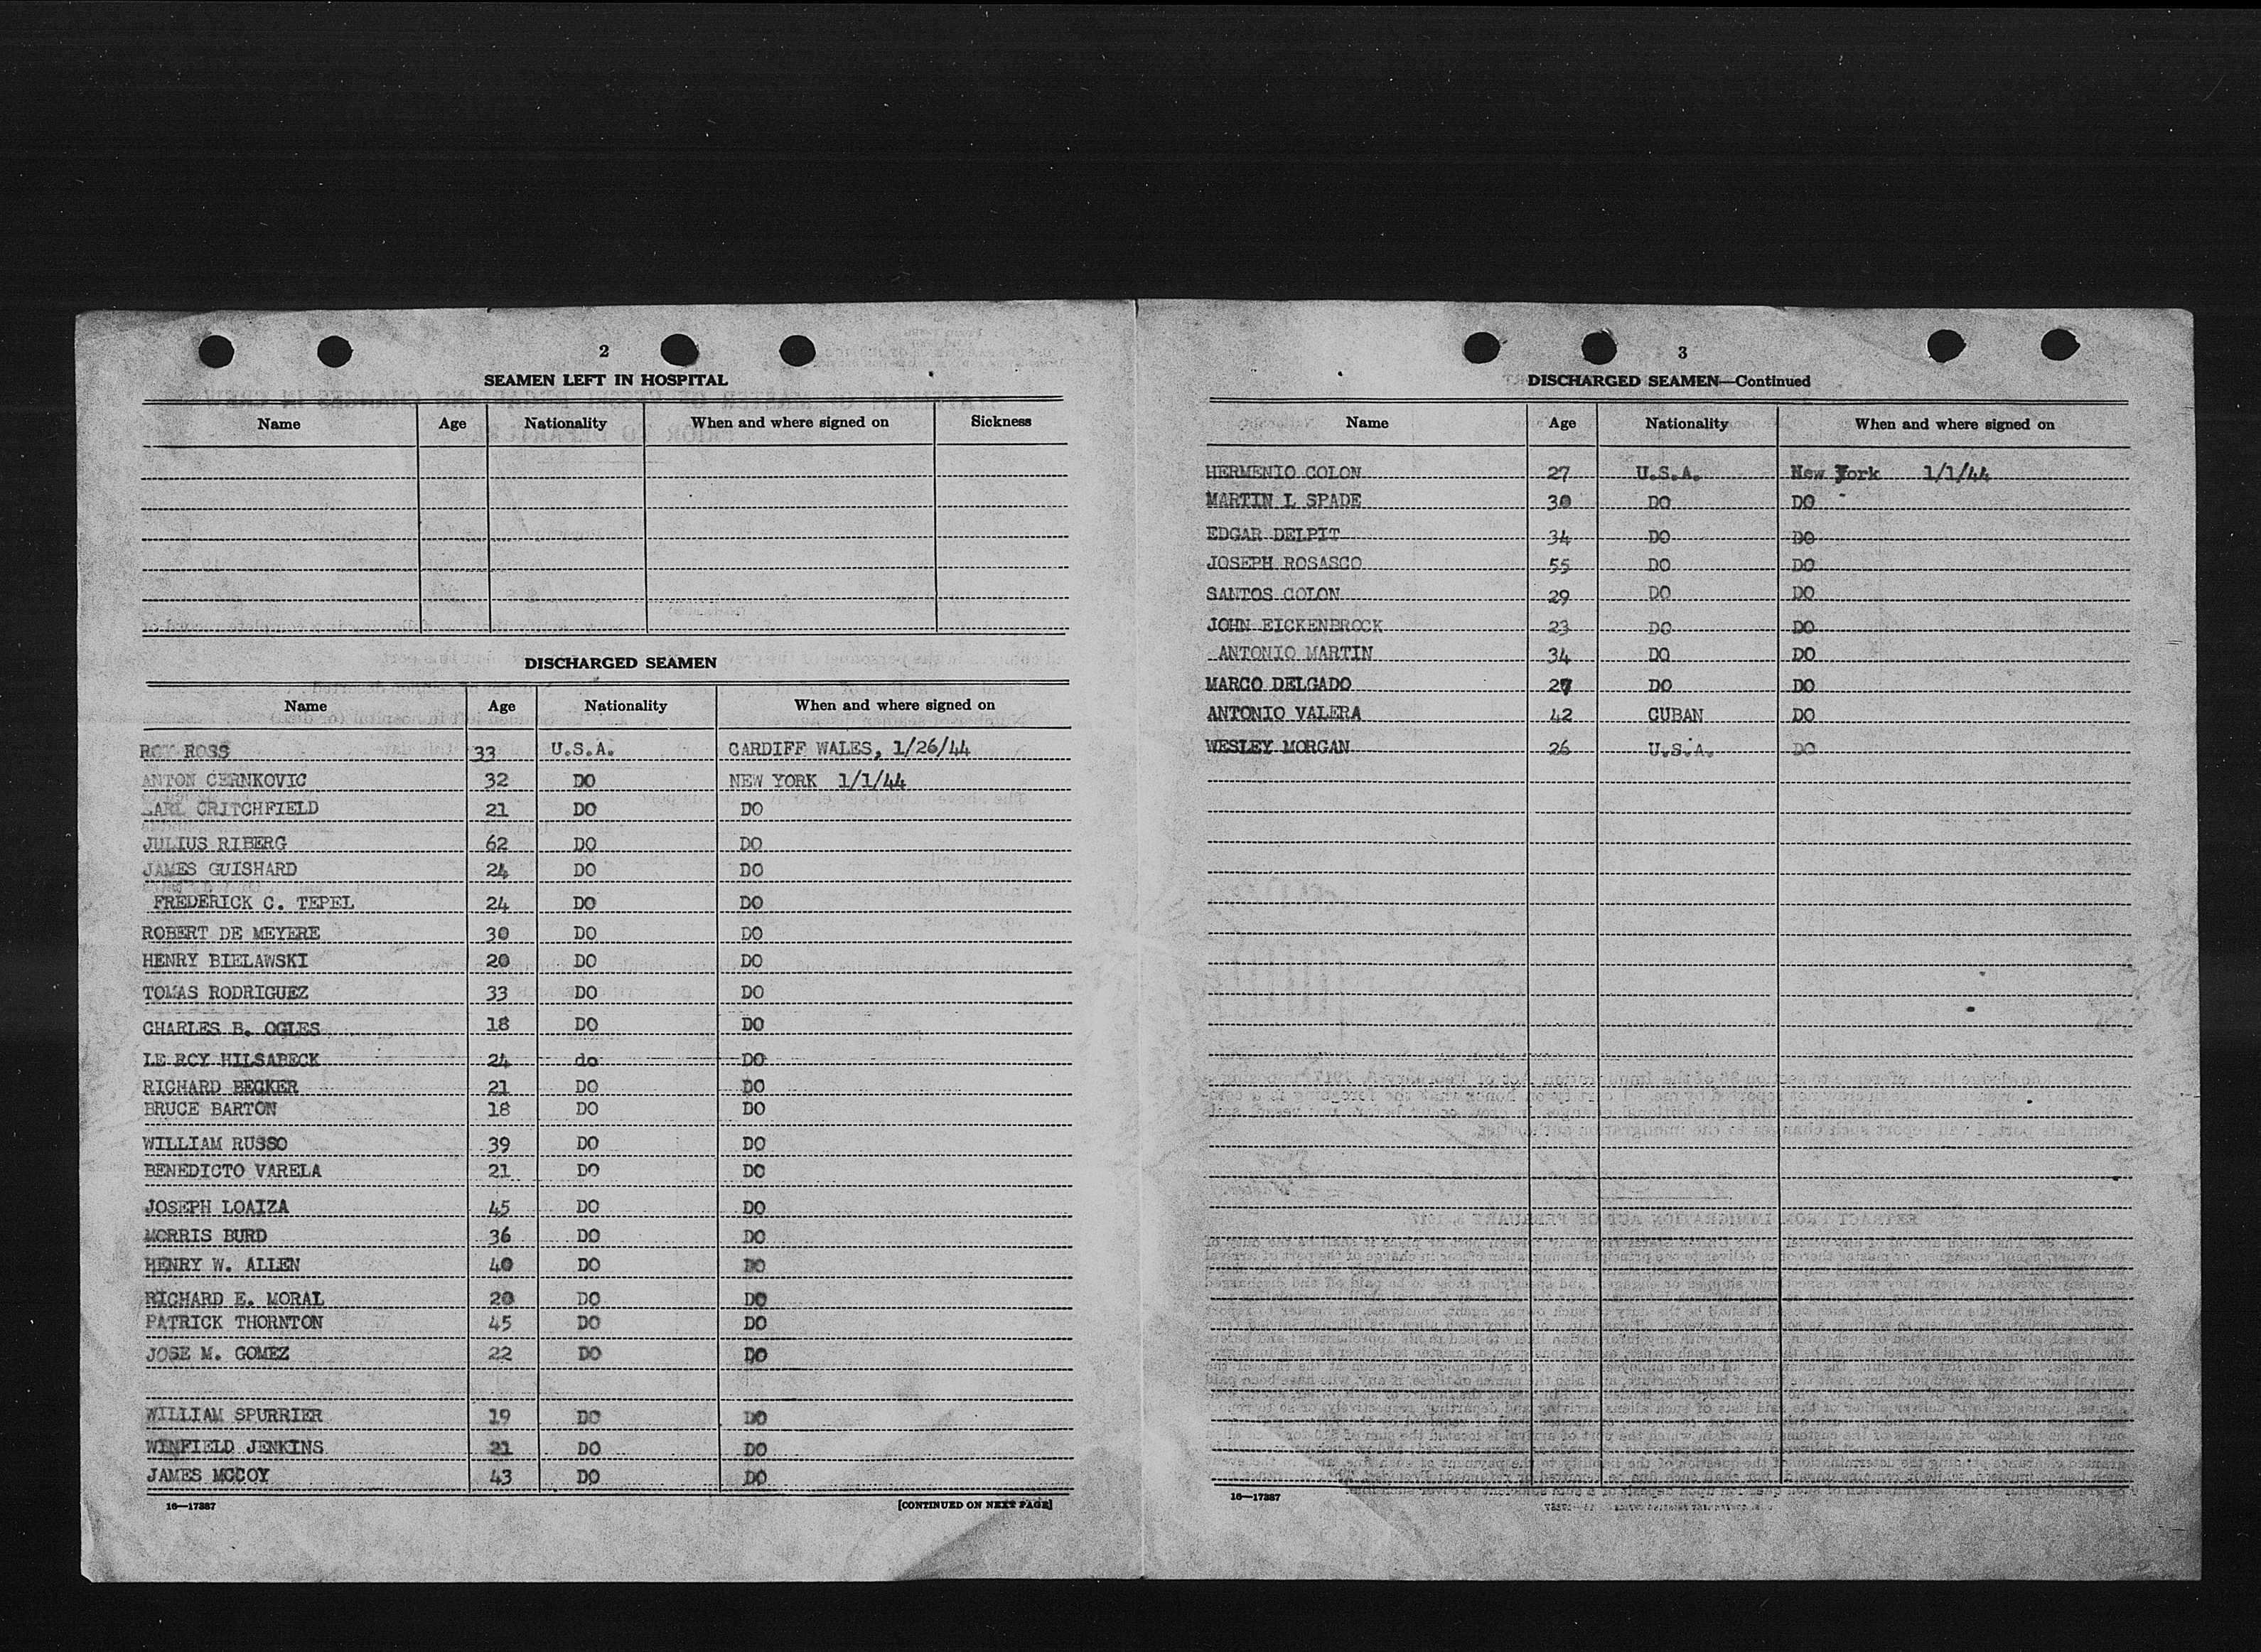 2
SEAMEN LEFT IN HOSPITAL
Name Age Nationality When and where signed on Sickness
DISCHARGED SEAMEN
Name Age Nationality When and where signed on
ROY ROSS 33 U.S.A. CARDIFF WALES, 1/26/44
ANTON CERNKOVIC 32 DO NEW YORK 1/1/44
CRITCHFIELD 21 DO DO
JULIUS RIBERG 62 DO DO
JAMES GUISHARD 24 DO DO
FREDERICK C. TEPEL 24 DO DO
ROBERT DE MEYERE 30 DO DO
HENRY BIELAWSKI 20 DO DO
TOMAS RODRIGUEZ 33 DO DO
CHARLES B. OGLES 18 DO DO
LE ROY HILSABECK 24 do DO
RICHARD BECKER 21 DO DO
BRUCE BARTON 18 DO DO
WILLIAM RUSSO 39 DO DO
BENEDICTO VARELA 21 DO DO
JOSEPH LOAIZA 45 DO DO
MORRIS BURD 36 DO DO
HENRY W. ALLEN 40 DO DO
RICHARD E. MORAL 20 DO DO
PATRICK THORNTON 45 DO DO
JOSE M. GOMEZ 22 DO DO
WILLIAM SPURRIER 19 DO DO
WINFIELD JENKINS 21 DO DO
JAMES MCCOY 43 DO DO
16—17387 [CONTINUED ON NEXT PAGE]
3
DISCHARGED SEAMEN—Continued
Name Age Nationality When and where signed on
HERMENIO COLON 27 U.S.A. New York 1/1/44
MARTIN L SPADE 30 DO DO
EDGAR DELPIT 34 DO DO
JOSEPH ROSASCO 55 DO DO
SANTOS COLON 29 DO DO
JOHN EICKENBROCK 23 DO DO
ANTONIO MARTIN 34 DO DO
MARCO DELGADO 27 DO DO
ANTONIO VALERA 42 CUBAN DO
WESLEY MORGAN 26 U.S.A. DO
16—17387